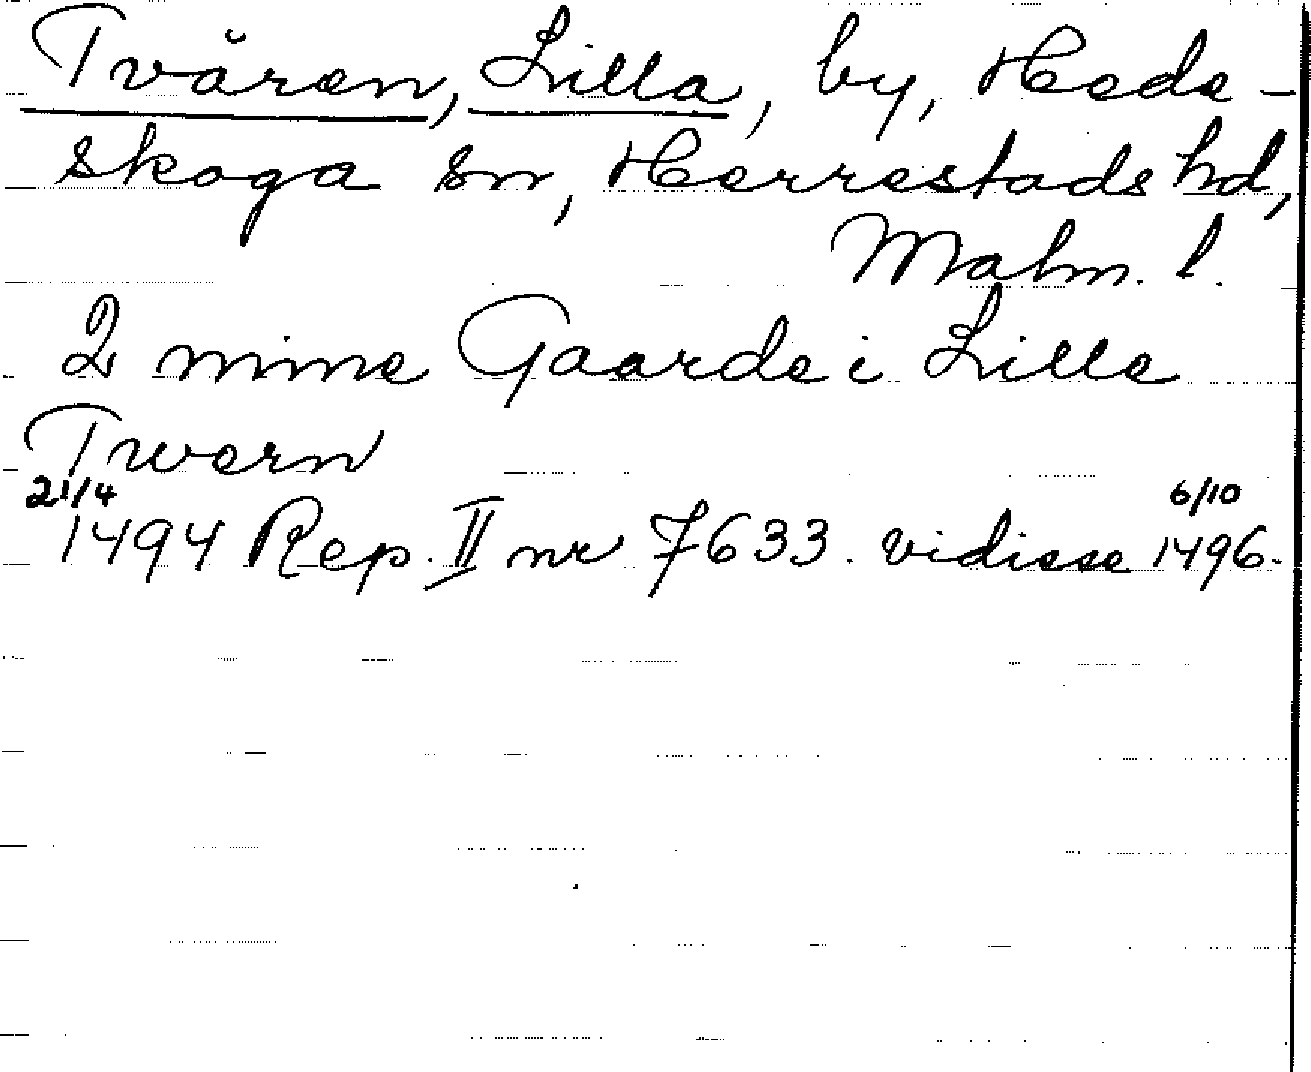 Tvären, Lilla, by, Hede-
skoga sn, Herrestads hd,
Malm. l.
2 mine Gaarde i Lille
Twern
21/4 6/10
1494 Rep. II nr 7633. vidisse 1496.